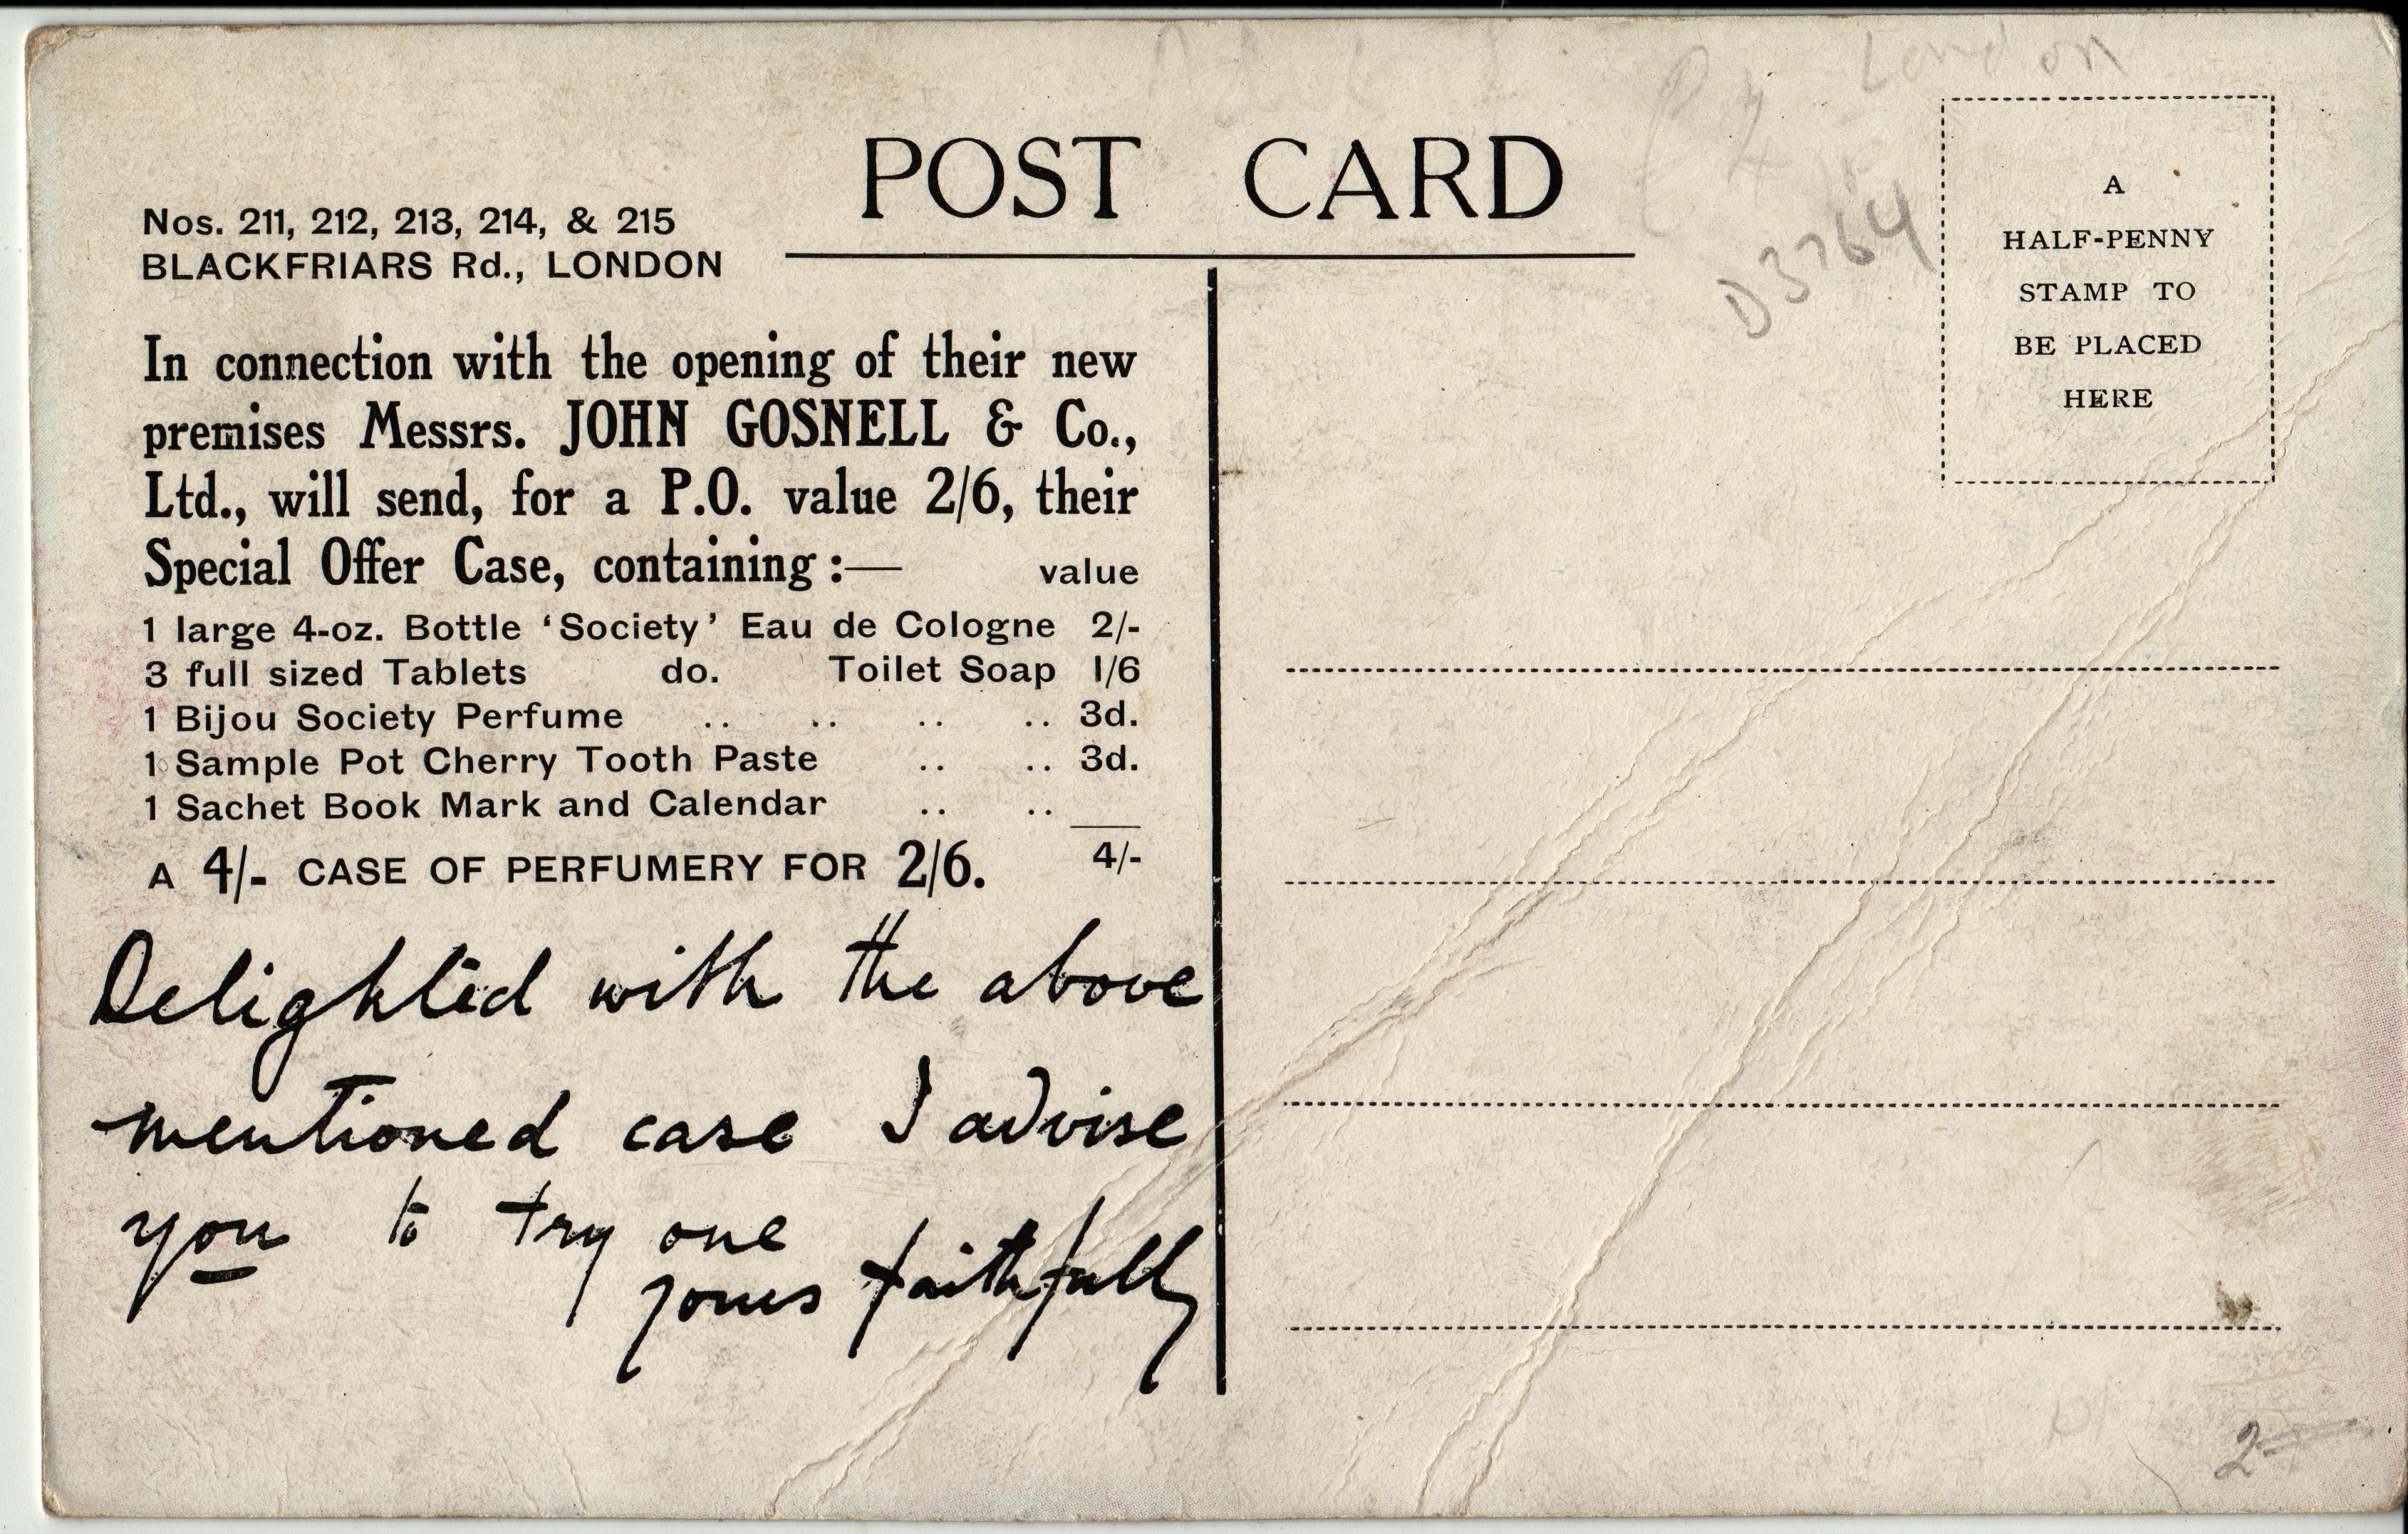 London
POST CARD
Nos. 211, 212, 213, 214, & 215
BLACKFRIARS Rd., LONDON
D3764
A
HALF-PENNY
STAMP TO
BE PLACED
HERE
In connection with the opening of their new
premises Messrs. JOHN GOSNELL & Co.,
Ltd., will send, for a P.O. value 2/6, their
Special Offer Case, containing :— value
1 large 4-oz. Bottle ‘Society’ Eau de Cologne 2/-
3 full sized Tablets do. Toilet Soap 1/6
1 Bijou Society Perfume .. .. .. .. 3d.
1 Sample Pot Cherry Tooth Paste .. .. 3d.
1 Sachet Book Mark and Calendar .. ..
A 4/- CASE OF PERFUMERY FOR 2/6. 4/-
Delighted with the above
mentioned case I advise
you to try one
yours faithfully
2-